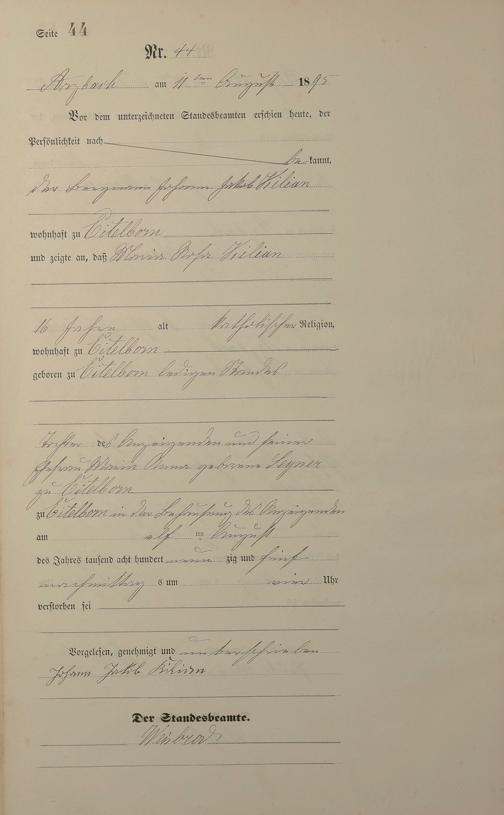 Seite 44
Nr. 44
Arzbach am 11ten August 1895
Vor dem unterzeichneten Standesbeamten erschien heute, der
Persönlichkeit nach
be kannt,
der Bergmann Johann Jakob Kilian
wohnhaft zu Eitelborn
und zeigte an, daß Maria Rosa Kilian
16 Jahre alt katholischer Religion,
wohnhaft zu Eitelborn
geboren zu Eitelborn ledigen Standes
Tochter des Anzeigenden und seiner
Ehefrau Maria Anna geborene
zu Eitelborn
zu Eitelborn in der Behausung des Anzeigenden
am elf ten August
des Jahres tausend acht hundert neun zig und fünf
nachmittag s um vier Uhr
verstorben sei
Vorgelesen, genehmigt und unterschrieben
Johann Jakob Kilian
Der Standesbeamte.